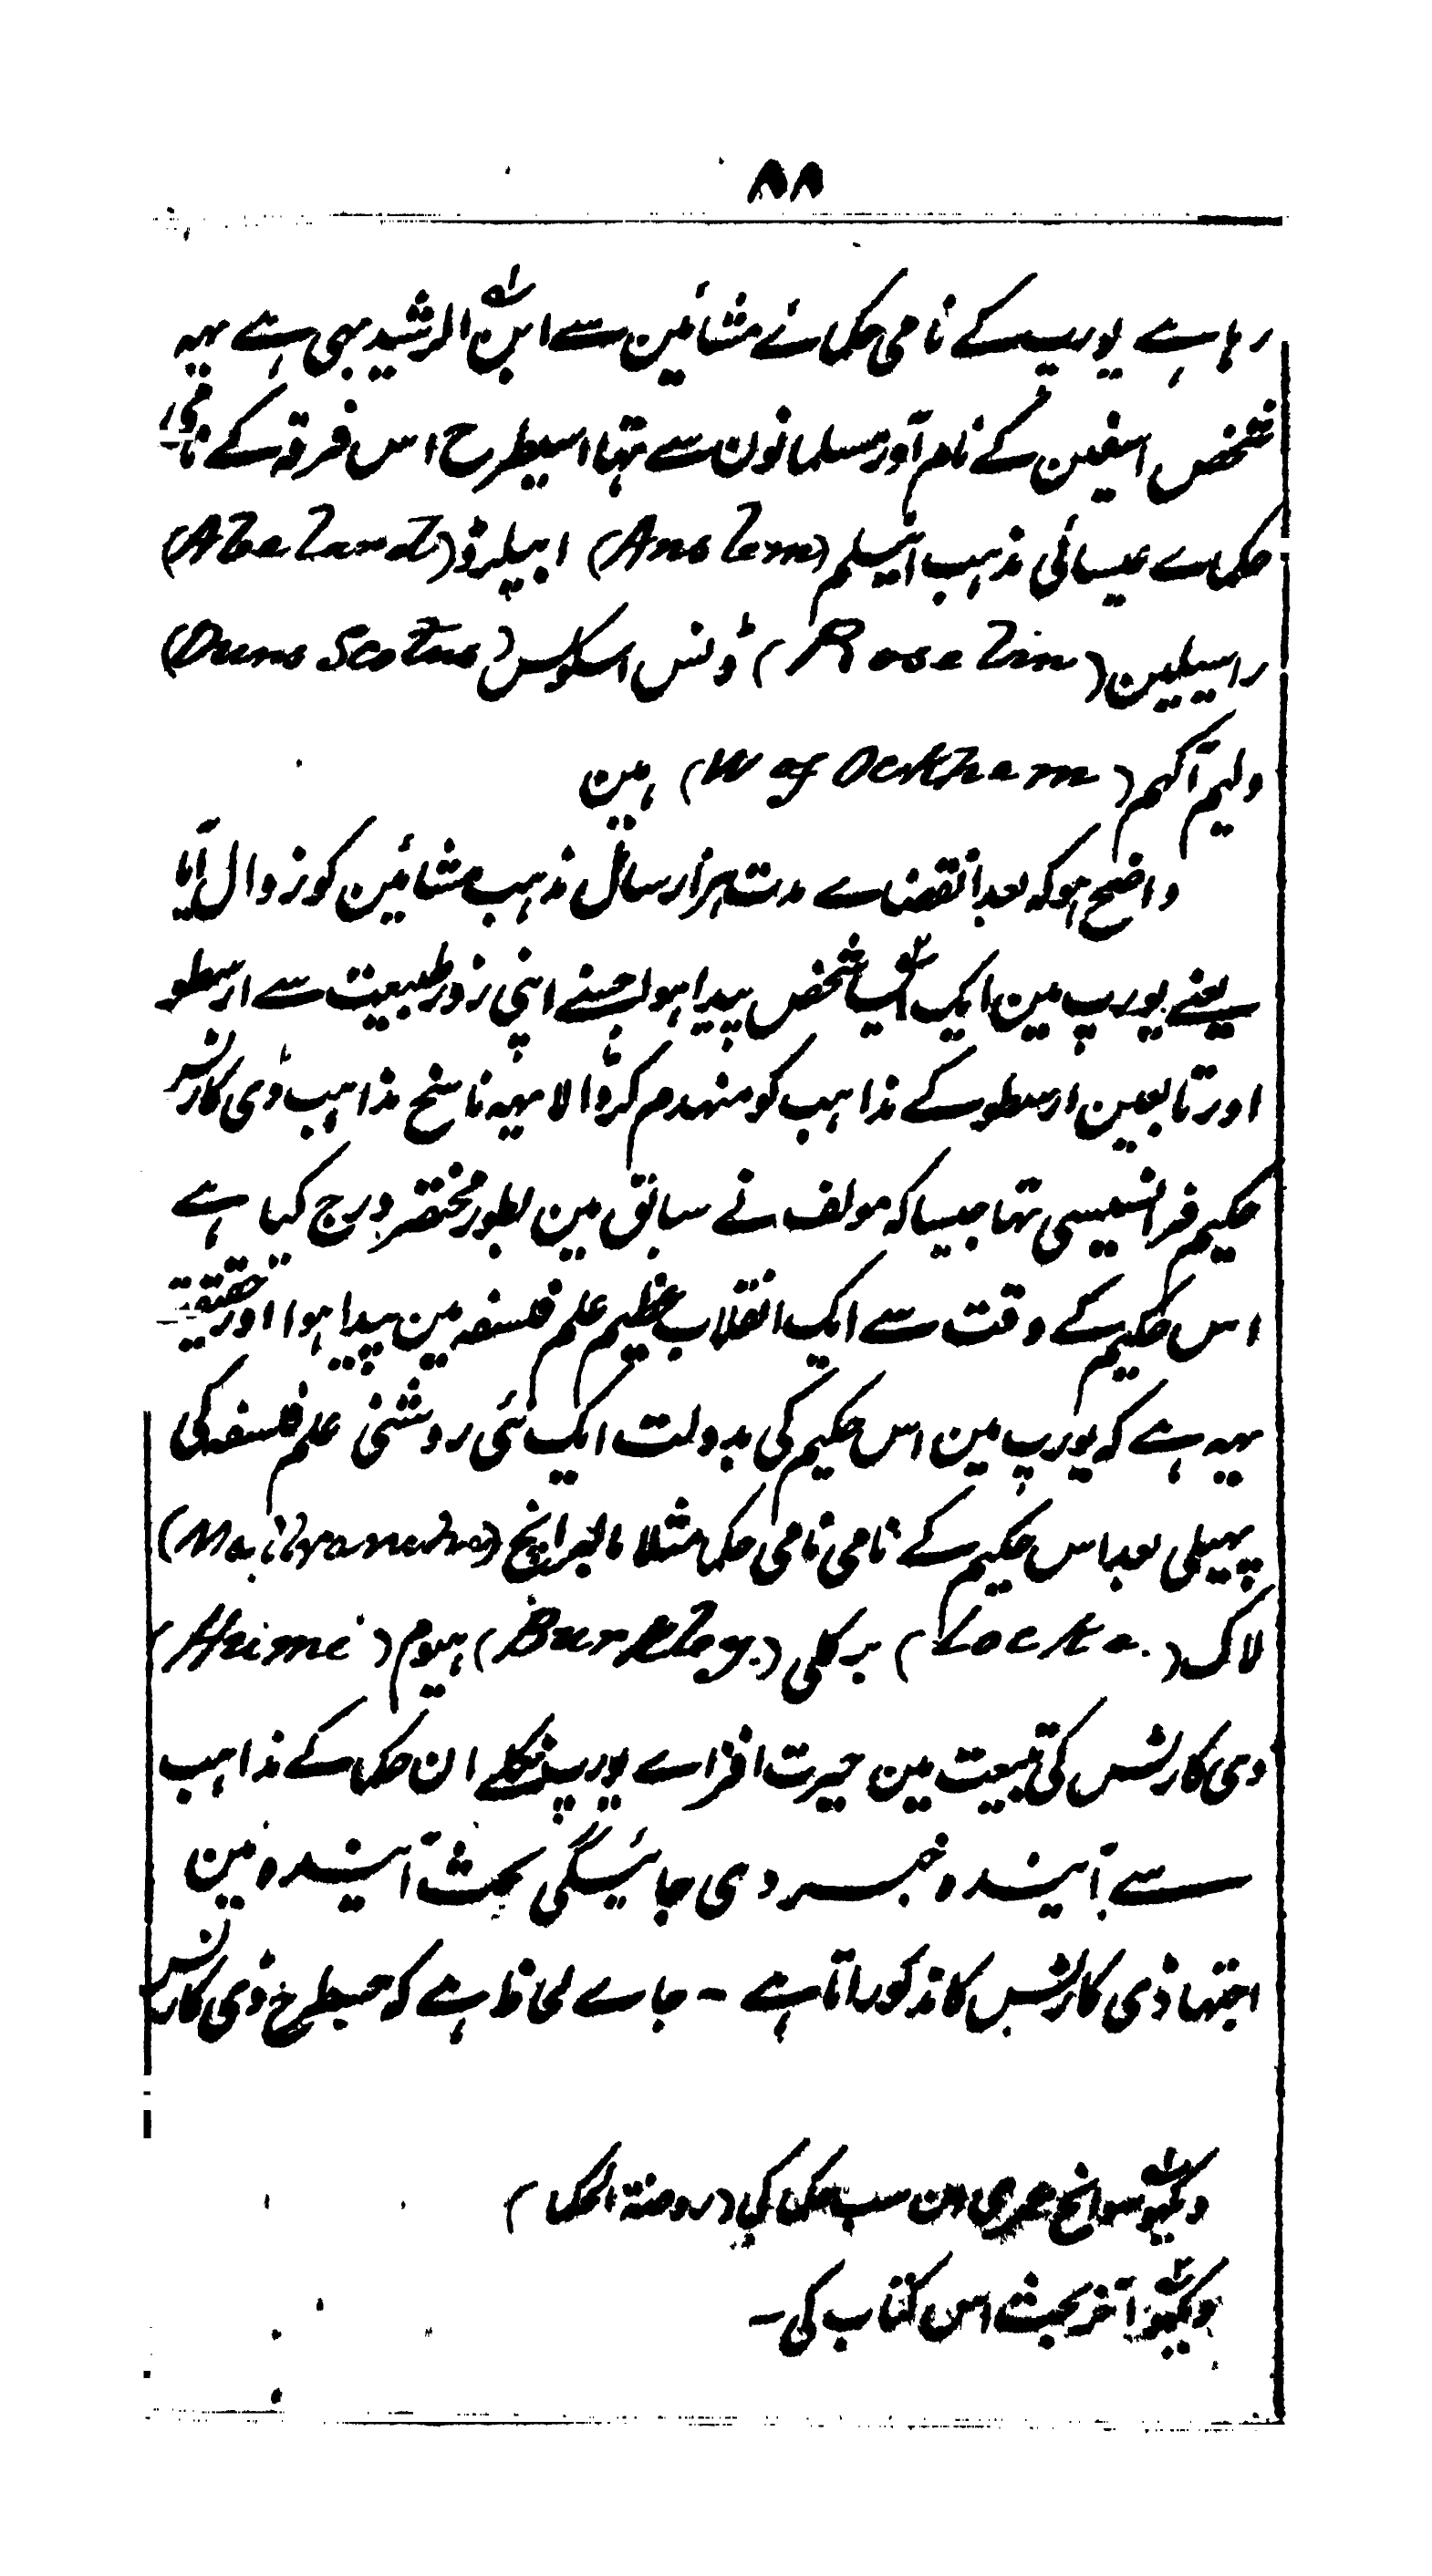 ۸۸
رہا ہے یورپ کے نامی حکمائے مشائین سے ابن الرشید بھی ہے یہہ
شخص اسفین کے نام آور مسلمانون سے تہا اسیطرح اس فرقہ کے نامی
حکماے عیسائی مذہب انسیلم (Anslem) ابیلرڈ (Abelard)
راسیلین (Roselin) ڈنس اسکوٹس (Duns Scotus)
ولیم آکہم (W of Ockham) ہین
واضح ہو کہ بعد انقضاے مدت ہزار سال مذہب مشائین کو زوال آیا
یعنے یورپ مین ایک ایسا شخص پیدا ہوا جسنے اپنی زور طبیعت سے ارسطو
اور تابعین ارسطو کے مذاہب کو منہدم کر ڈالا یہہ ناسخ مذاہب ڈی کارٹس
حکیم فرانسیسی تہا جیسا کہ مولف نے سابق مین بطور مختصر درج کیا ہے
اس حکیم کے وقت سے ایک انقلاب عظیم علم فلسفہ مین پیدا ہوا اور حقیقت
یہہ ہے کہ یورپ مین اس حکیم کی بدولت ایک نئی روشنی علم فلسفہ کی
پہیلی بعد اس حکیم کے نامی نامی حکما مثلا مالبرانخ (Malbranche)
لاک (Locke.) برکلی (Burkley.) ہیوم (Heime)
دی کارٹس کی تبعیت مین حیرت افزاے یورپ نکلے ان حکما کے مذاہب
سے آیندہ خبر دی جائیگی بحث آیندہ مین
اجتہاد ڈی کارٹس کا مذکور اتا ہے - جاے لحاظ ہے کہ جسطرح ڈی کارٹس
دیکہو سوانح عمری ان سب حکما کی (روضۃ الحکما)
دیکہو آخر بحث اس کتاب کی -